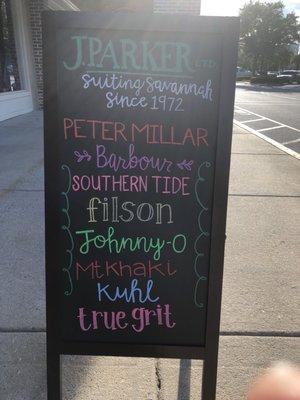 J.PARKER LTD
suiting Savannah
since 1972
PETER MILLAR
Barbour
SOUTHERN TIDE
filson
Johnny-O
Mtkhaki
KUHL
true grit